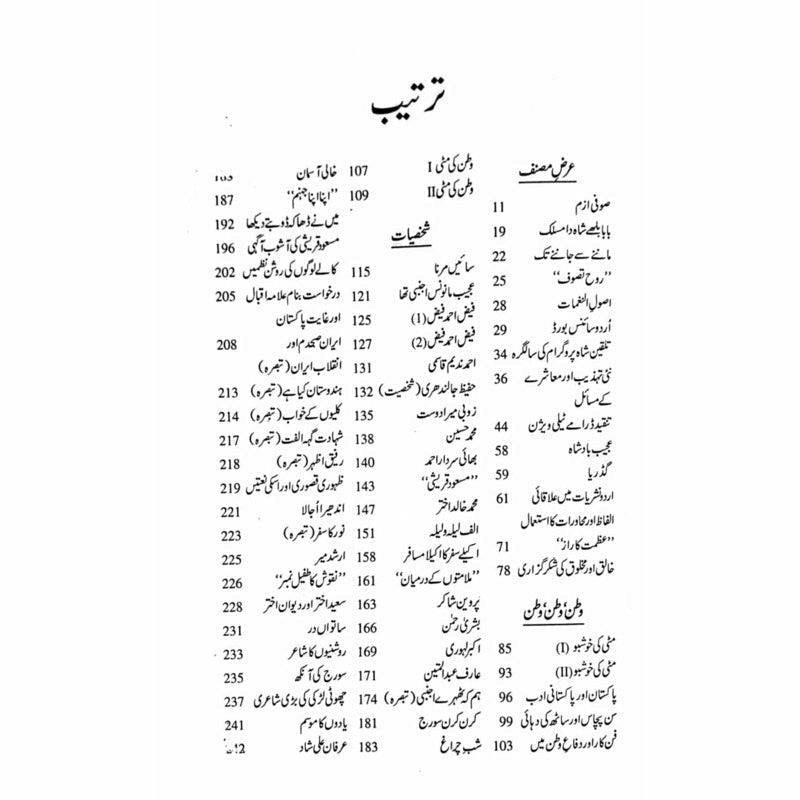 ترتیب
عرض مصنف
صوفی ازم 11
بابا بلھے شاہ دا مسلک 19
ماننے سے جاننے تک 22
”روح تصوف“ 25
اصول النغمات 28
اُردو سائنس بورڈ 29
تلقین شاہ پروگرام کی سالگرہ 34
نئی تہذیب اور معاشرے 36
کے مسائل
تنقید ڈرامے ٹیلی ویژن 44
عجیب بادشاہ 58
گڈریا 59
اردو نشریات میں علاقائی 61
الفاظ اور محاورات کا استعمال
”عظمت کا راز“ 71
خالق اور مخلوق کی شکر گزاری 78
وطن، وطن، وطن
مٹی کی خوشبو (I) 85
مٹی کی خوشبو (II) 93
پاکستان اور پاکستانی ادب 96
سن پچاس اور ساٹھ کی دہائی 99
فن کار اور دفاع وطن میں 103
وطن کی مٹی I 107
وطن کی مٹی II 109
شخصیات
سائیں مرنا 115
عجیب مانوس اجنبی تھا 121
فیض احمد فیض (1) 125
فیض احمد فیض (2) 127
احمد ندیم قاسمی 131
حفیظ جالندھری (شخصیت) 132
زوبی میرا دوست 135
محمد حسین 138
بھائی سردار احمد 140
”مسعود قریشی“ 143
محمد خالد اختر 147
الف لیلہ و لیلہ 151
اکیلے سفر کا اکیلا مسافر 158
”ملامتوں کے درمیان“ 161
پروین شاکر 163
بشریٰ رحمٰن 166
اکبر لہوری 169
عارف عبدالمتین 171
ہم کہ ٹھہرے اجنبی (تبصرہ) 174
کرن کرن سورج 181
شب چراغ 183
خالی آسمان
”اپنا اپنا جہنم“ 187
میں نے ڈھاکہ ڈوبتے دیکھا 192
مسعود قریشی کی آشوب آگہی 196
کالے لوگوں کی روشن نظمیں 202
درخواست بنام علامہ اقبال 205
اور غایت پاکستان
ایران صبحدم اور 208
انقلاب ایران (تبصرہ)
ہندوستان کیا ہے (تبصرہ) 213
کلیوں کے خواب (تبصرہ) 214
شہادت گہہ الفت (تبصرہ) 217
رفیق اظہر (تبصرہ) 218
ظہوری قصوری اور اسکی نعتیں 219
اندھیرا اُجالا 221
نور کا سفر (تبصرہ) 223
ارشد میر 225
”نقوش کا طفیل نمبر“ 226
سعید اختر اور دیوان اختر 228
ساتواں در 231
روشنیوں کا شاعر 233
سورج کی آنکھ 235
چھوٹی لڑکی کی بڑی شاعری 237
یادوں کا موسم 241
عرفان علی شاد